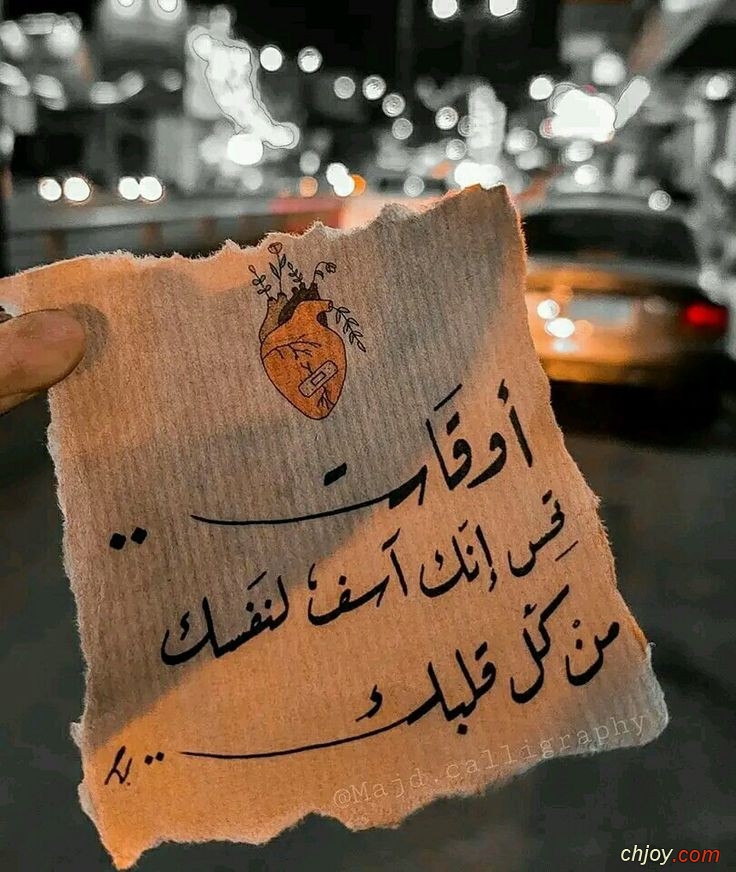 أوقَات ..
تحِس إنَك آسف، لنفَسك
منْ كلّ قلبك ..
@Majd.calligraphy
chjoy.com